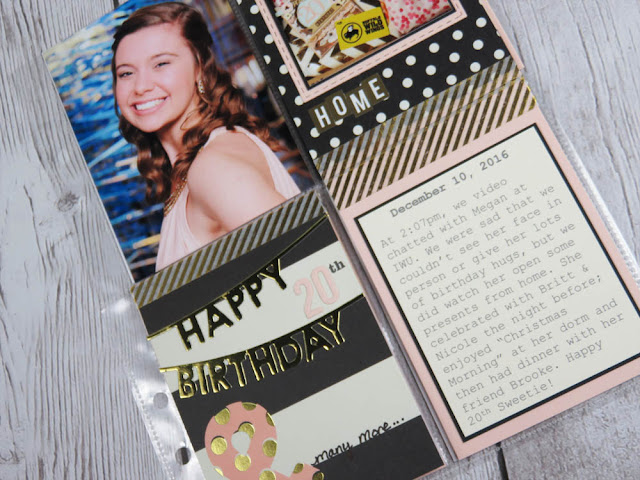 BUFFALO
WILD
WINGS
HOME
HAPPY
20th
BIRTHDAY
&
many more...
December 10, 2016
At 2:07pm, we video
chatted with Megan at
IWU. We were sad that we
couldn't see her face in
person or give her lots
of birthday hugs, but we
did watch her open some
presents from home. She
celebrated with Britt &
Nicole the night before;
enjoyed "Christmas
Morning" at her dorm and
then had dinner with her
friend Brooke. Happy
20th Sweetie!